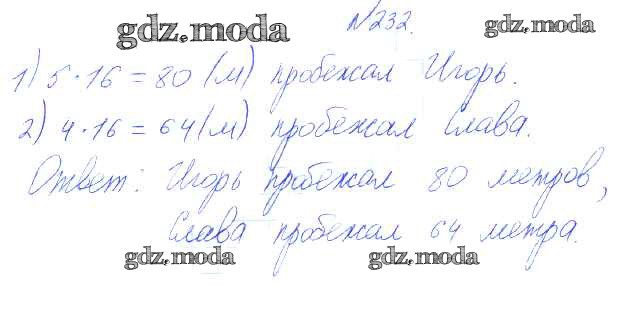 №232.
gdz.moda gdz.moda
1) 5·16 = 80 (м) пробежал Игорь.
2) 4·16 = 64 (м) пробежал Слава.
Ответ: Игорь пробежал 80 метров,
Слава пробежал 64 метра.
gdz.moda gdz.moda